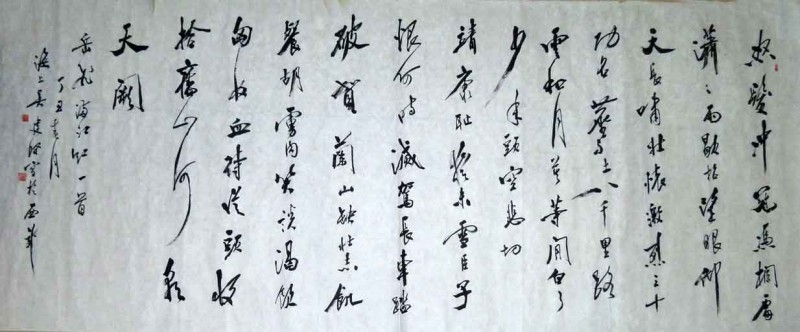 怒髮冲冠憑欄處
瀟瀟雨歇抬望眼仰
天長嘯壯懷激烈三十
功名塵與土八千里路
雲和月莫等閒白了
少年頭空悲切
靖康恥猶未雪臣子
恨何時滅駕長車踏
破賀蘭山缺壯志飢
餐胡虜肉笑談渴飲
匈奴血待從頭收
拾舊山河朝
天闕
岳飛滿江紅一首
丁丑春月